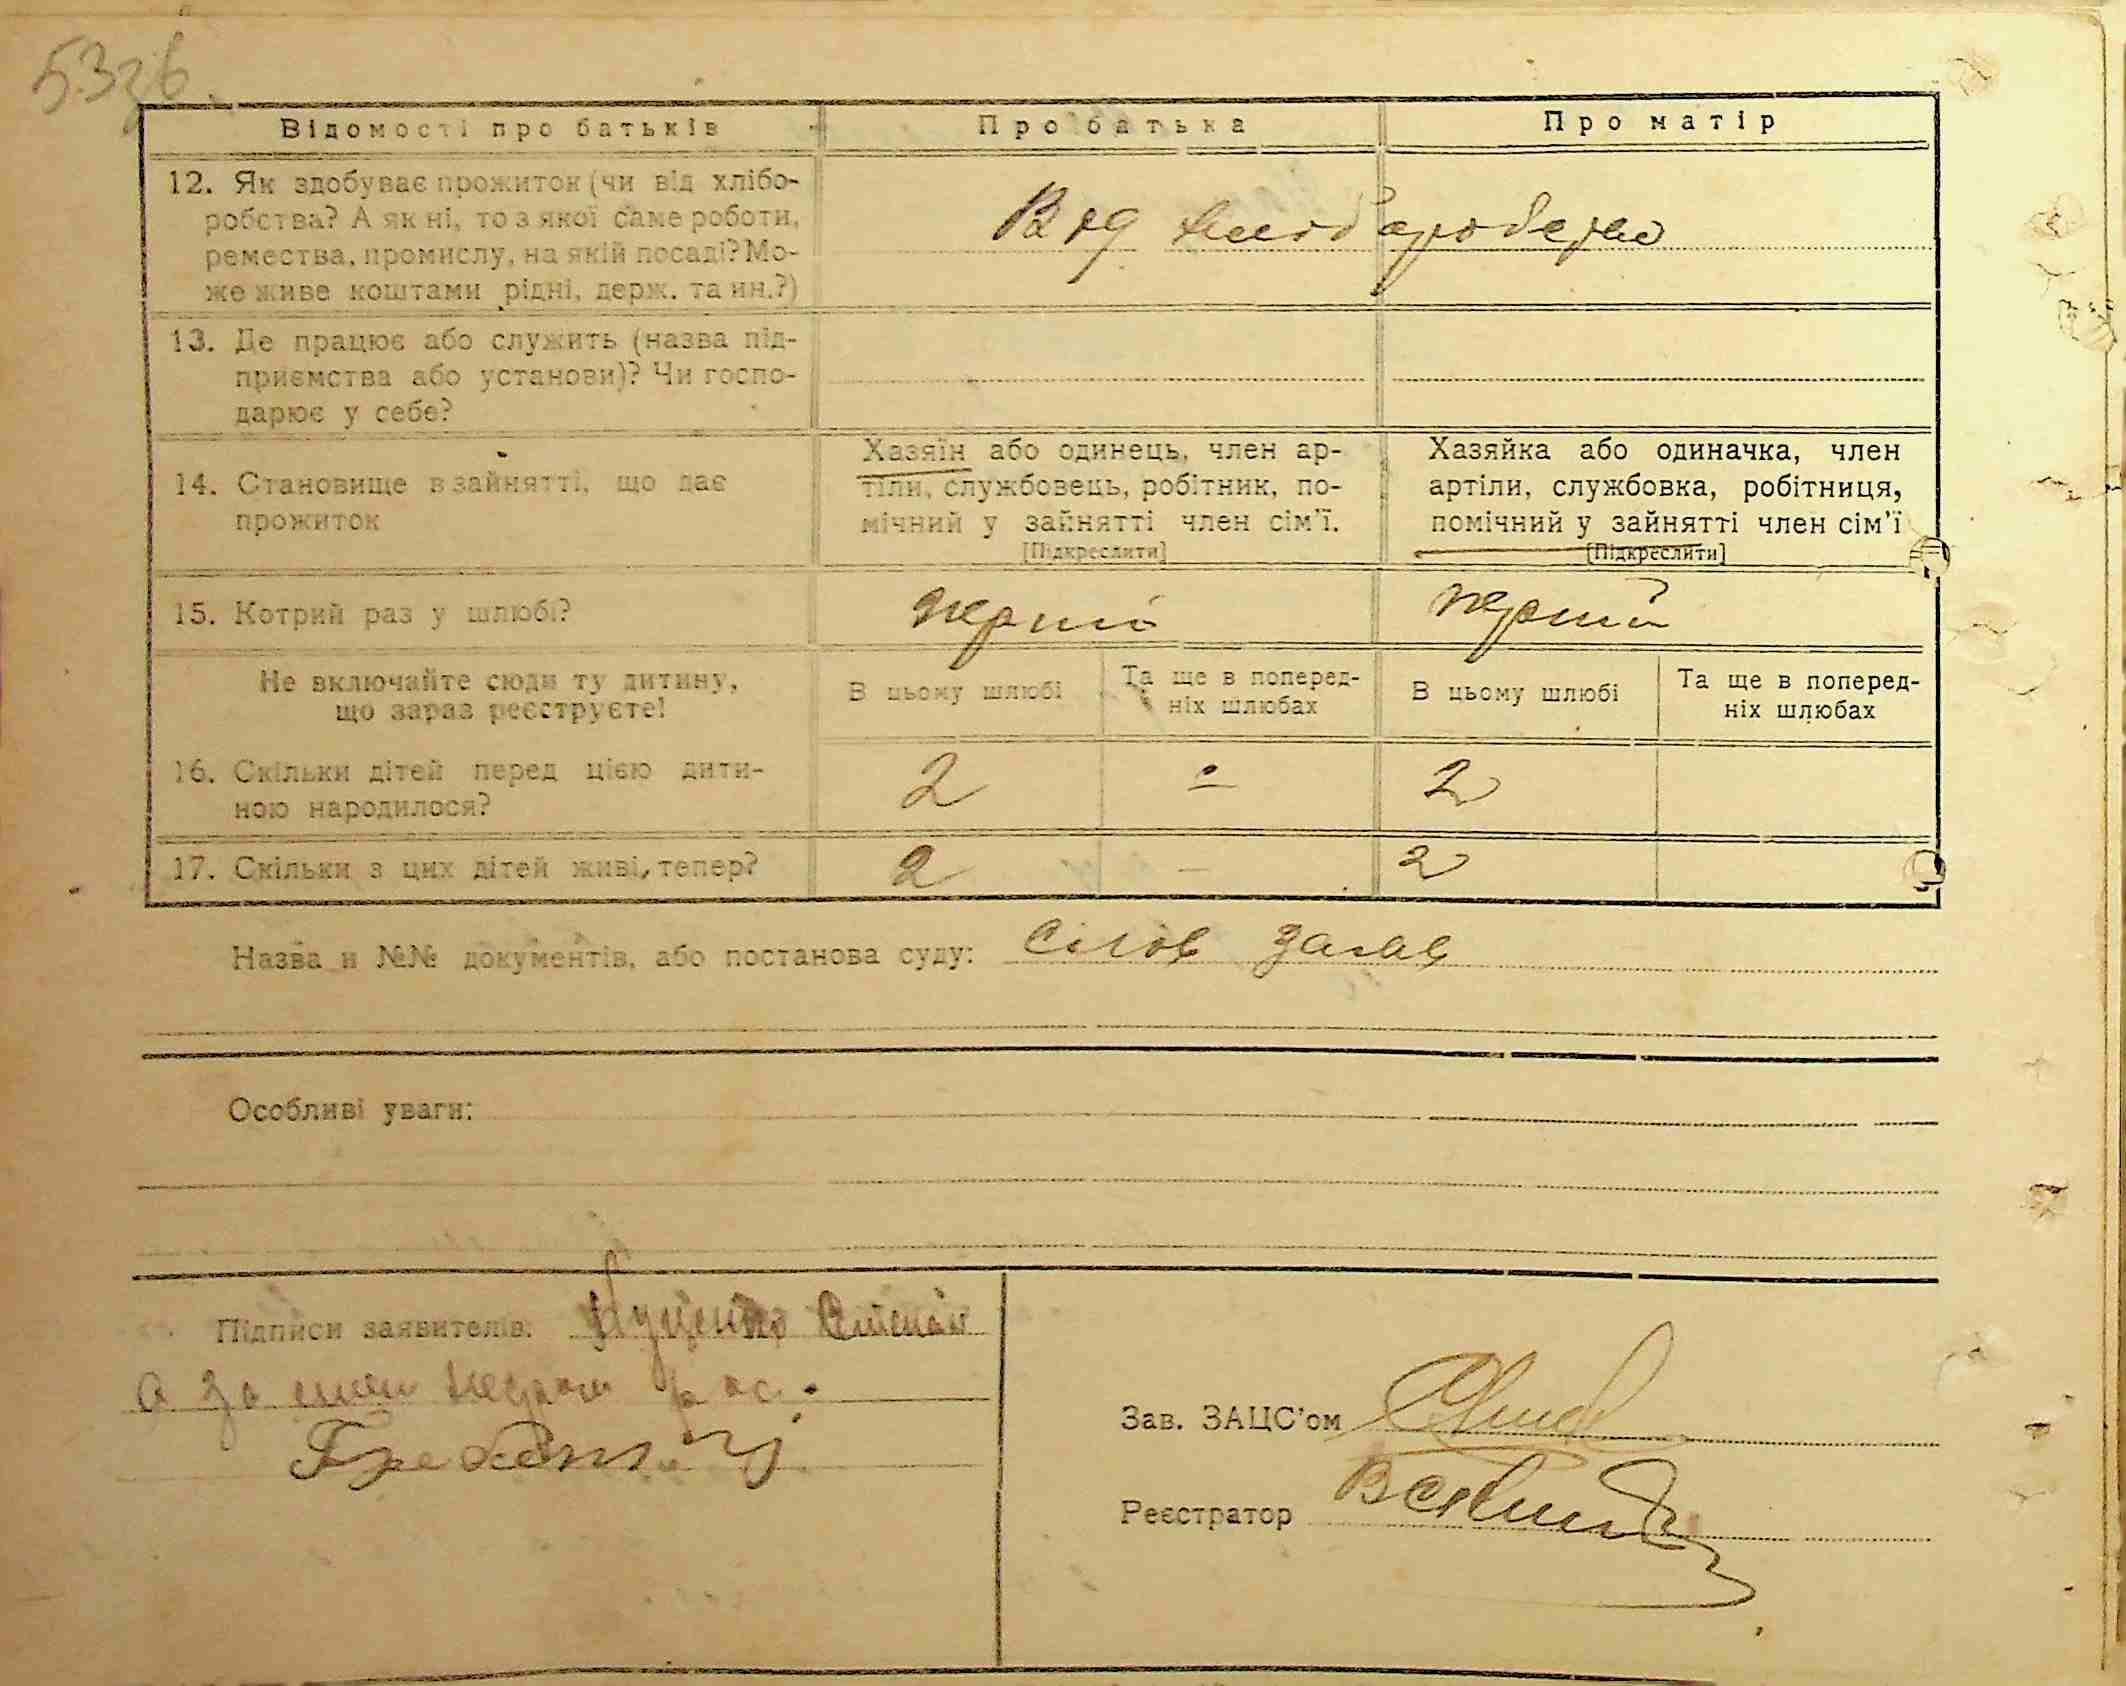 53зв
Відомості про батьків
Про батька
Про матір
12. Як здобуває прожиток (чи від хлібо-
робства? А як ні, то з якої саме роботи,
ремества, промислу, на якій посаді? Мо-
же живе коштами рідні, держ. та ин.?)
Від
13. Де працює або служить (назва під-
приємства або установи)? Чи госпо-
дарює у себе?
14. Становище в зайнятті, що дає
прожиток
Хазяїн або одинець, член ар-
тіли, службовець, робітник, по-
мічний у зайнятті член сім'ї.
[Підкреслити]
Хазяйка або одиначка, член
артіли, службовка, робітниця,
помічний у зайнятті член сім'ї
[Підкреслити]
15. Котрий раз у шлюбі?
перший
перший
Не включайте сюди ту дитину,
що зараз реєструєте!
В цьому шлюбі
Та ще в поперед-
ніх шлюбах
В цьому шлюбі
Та ще в поперед-
ніх шлюбах
16. Скільки дітей перед цією дити-
ною народилося?
2
-
2
17. Скільки з цих дітей живі, тепер?
2
-
2
Назва и №№ документів, або постанова суду:
Особливі уваги:
Підписи заявителів: Куценко Степан
Зав. ЗАЦС'ом
Реєстратор